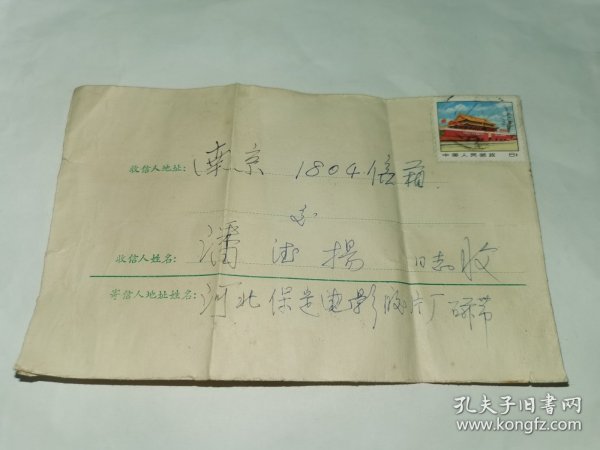 中国人民邮政
收信人地址: 南京 1804信箱
交
收信人姓名: 潘 扬 同志收
寄信人地址姓名: 河北保定电影胶片厂
孔夫子旧书网
www.kongfz.com